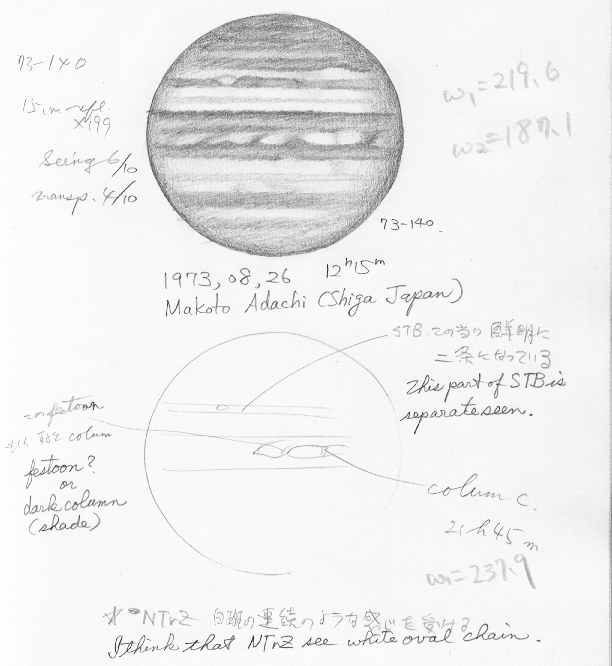 73-140
ω₁=219.6
15cm refl.
×199
ω₂=187.1
Seeing 6/10
transp. 4/10
73-140.
1973, 08, 26 12h15m
Makoto Adachi (Shiga Japan)
STB. この当り 鮮明に
二条になっている
This part of STB is
separate seen.
festoon
colum
festoon?
or
dark column
(shade)
colum c.
21h 45m
ω₁=237.9
NTrZ 白斑の連続のような感じを受ける
I think that NTrZ see white oval chain.